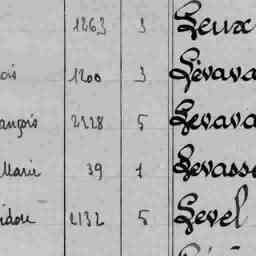 1263 3 Leux
ois 1200 3 Léava
ançois 2328 5 Levava
Marie 39 1 Levasse
idore 2132 5 Level